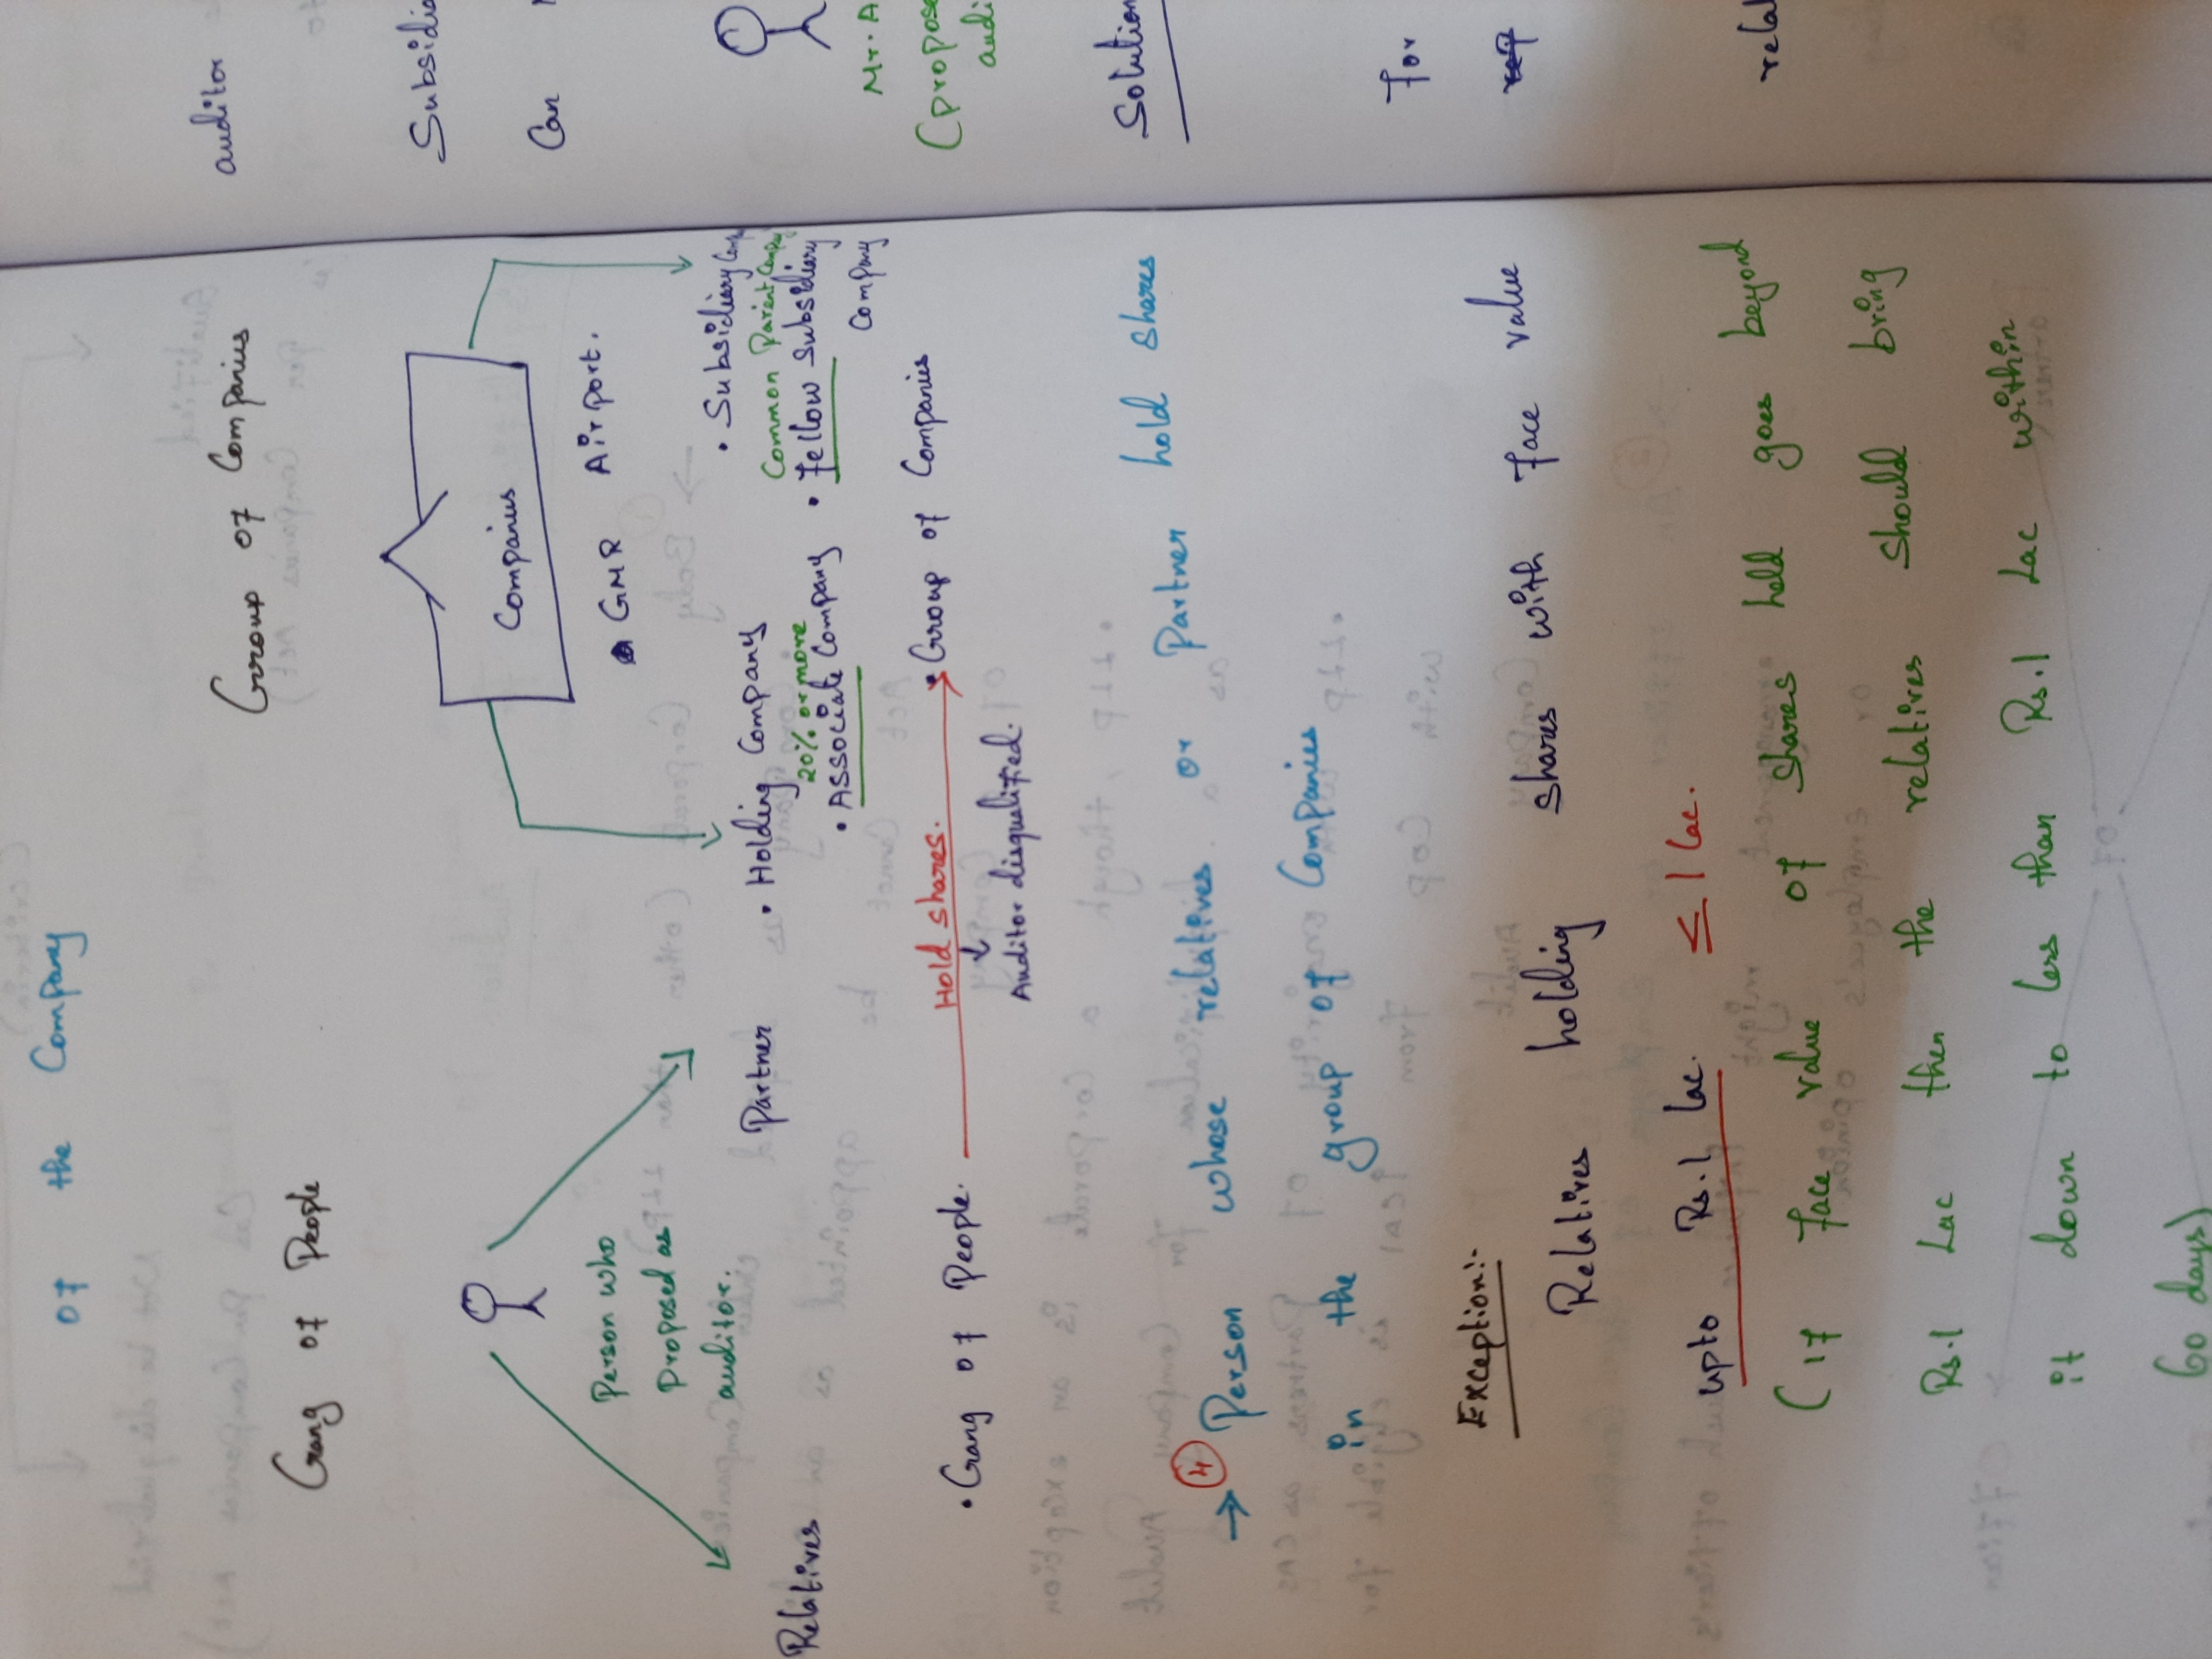 of the Company
Gang of People
Group of Companies
Companies
Person who
Proposed as
auditor.
GMR Airport.
Relatives
Partner
• Holding Company
20% or more
• Associate Company
• Subsidiary
Common Parent Company
• Fellow Subsidiary
Company
• Gang of People.
Hold shares.
• Group of Companies
Auditor disqualified.
→ ④ Person whose relatives or Partner hold shares
in the group of Companies
Exception:-
Relatives holding shares with face value
upto Rs.1 Lac. ≤ 1 Lac.
(if face value of shares held goes beyond
Rs.1 Lac then the relatives should bring
it down to less than Rs.1 Lac within
60 days)
auditor
Can
Mr. A
Solution
For